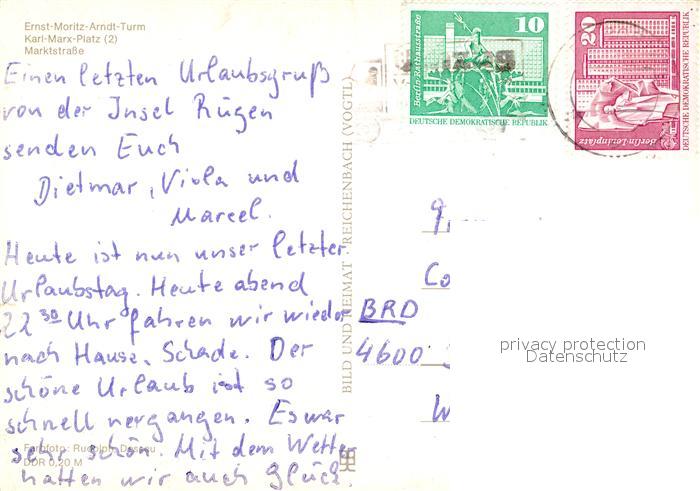 Ernst-Moritz-Arndt-Turm
Karl-Marx-Platz (2)
Marktstraße
Einen letzten Urlaubsgruß
von der Insel Rügen
senden Euch
Dietmar, Viola und
Marcel.
Heute ist nun unser letzter
Urlaubstag. Heute abend
22 30 Uhr fahren wir wieder
nach Hause. Schade. Der
schöne Urlaub ist so
schnell vergangen. Es war
sehr schön. Mit dem Wetter
hatten wir auch Glück.
Farbfoto: Rudolph, Dessau
DDR 0,20 M
BILD UND HEIMAT · REICHENBACH (VOGTL)
10
Berlin, Rathausstraße
DEUTSCHE DEMOKRATISCHE REPUBLIK
20
Berlin-Leninplatz
DEUTSCHE DEMOKRATISCHE REPUBLIK
Co
BRD
4600
W
privacy protection
Datenschutz